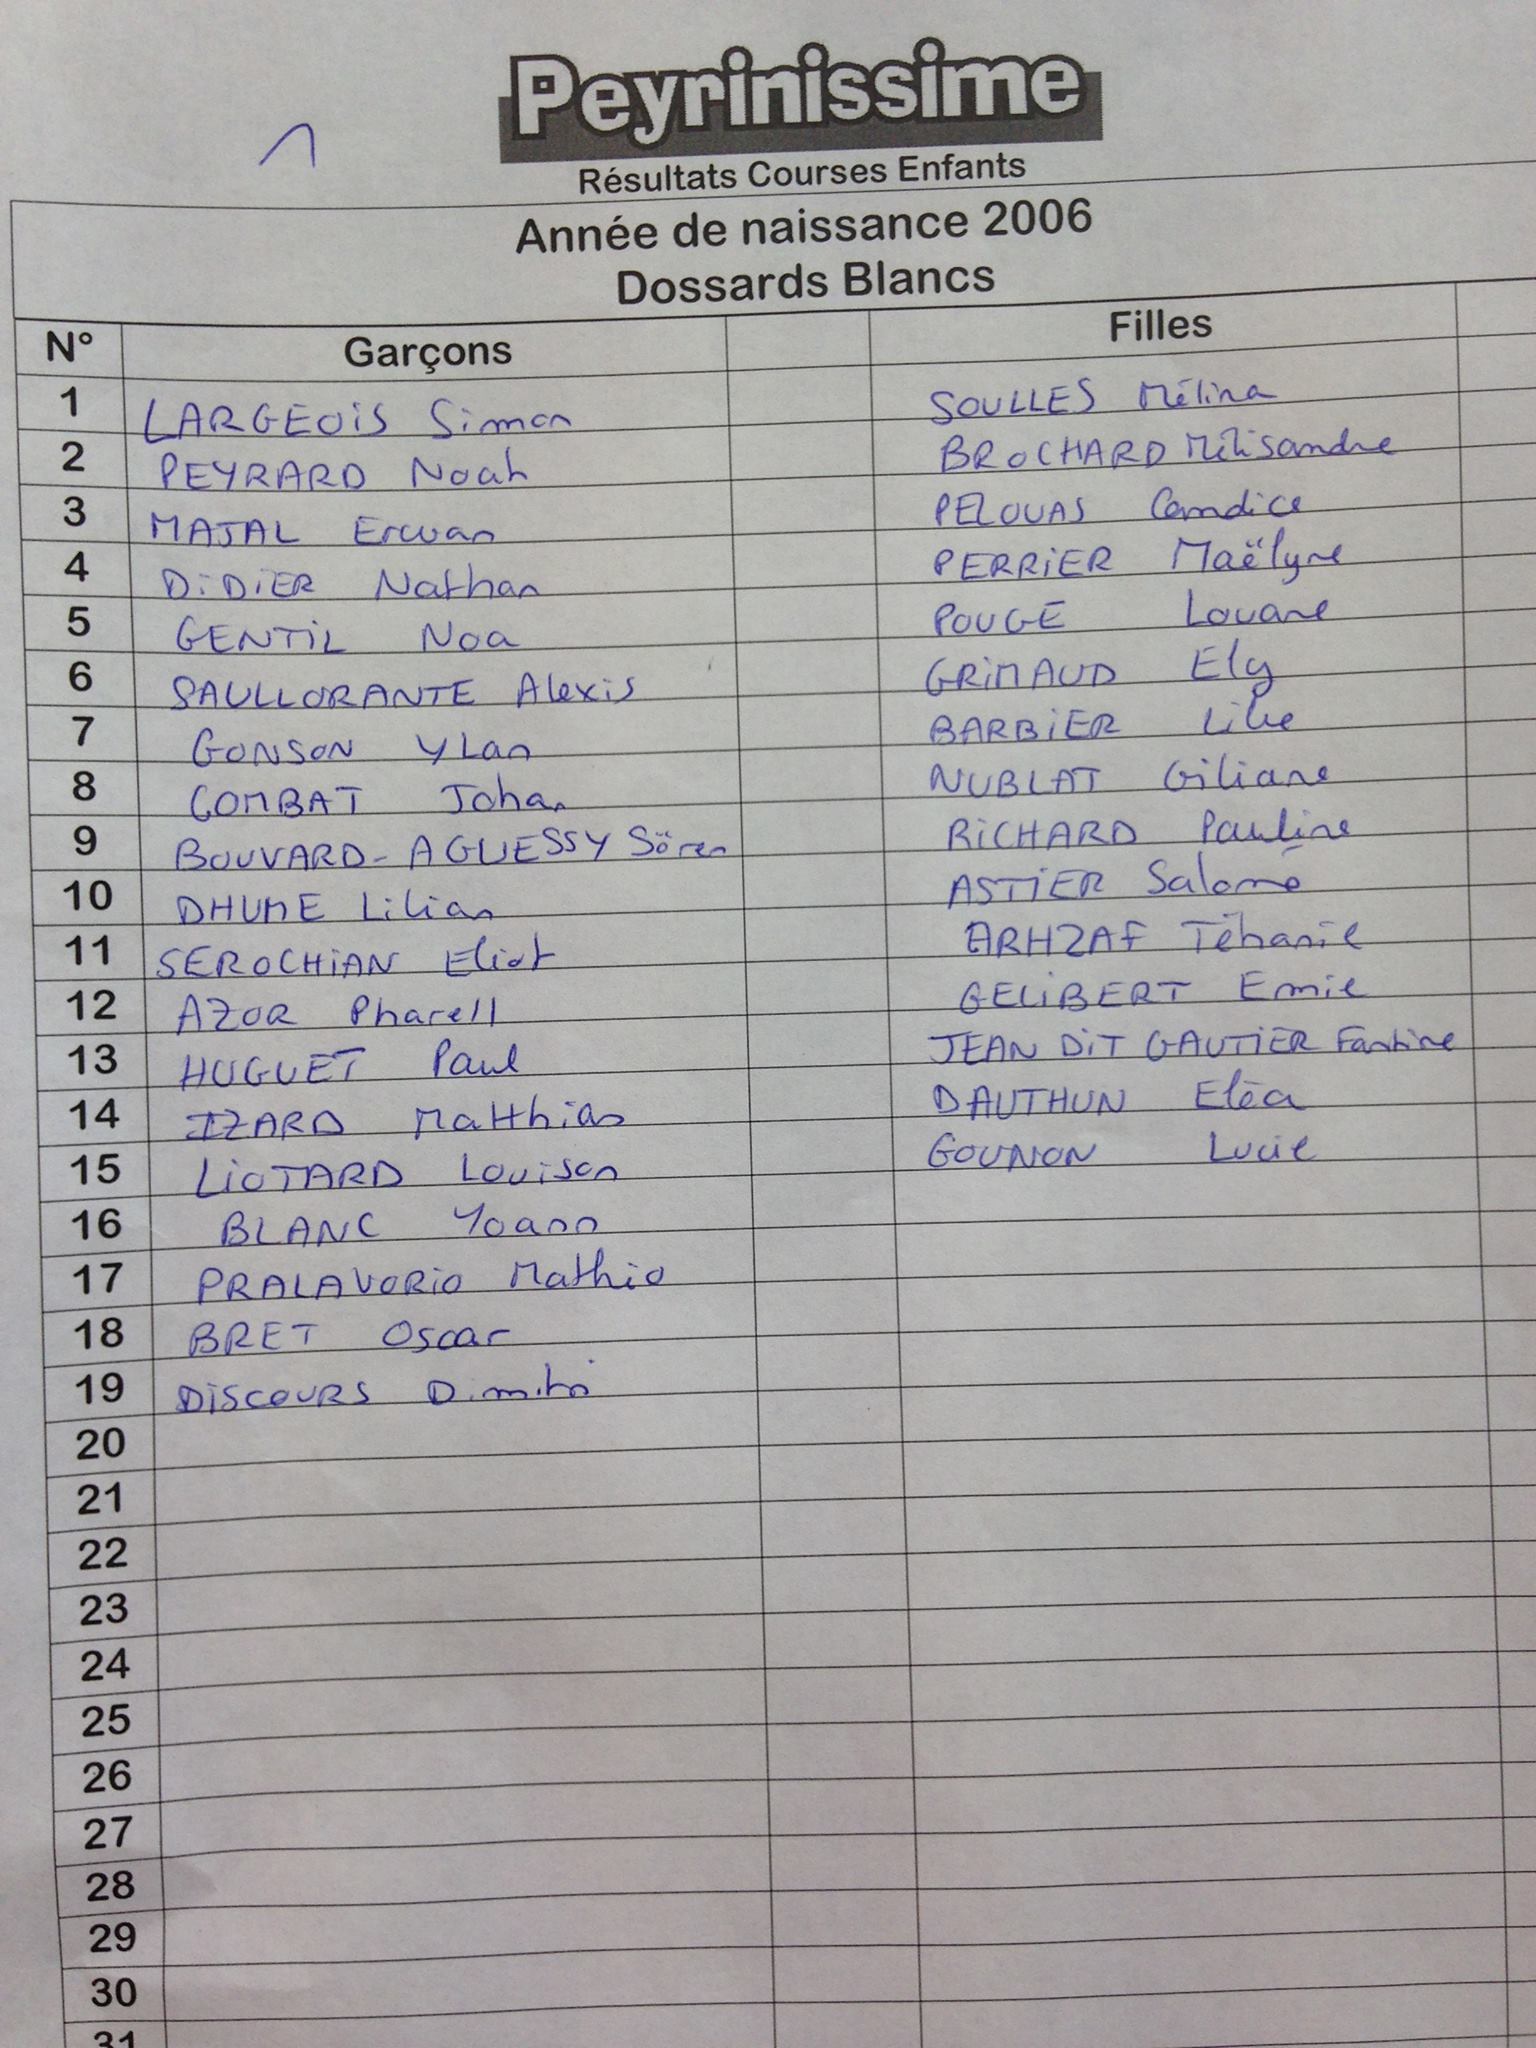 Peyrinissime
Résultats Courses Enfants
Année de naissance 2006
Dossards Blancs
N° Garçons Filles
1 LARGEOIS Simon SOULLES Mélina
2 PEYRARD Noah BROCHARD Mélisandre
3 MAJAL Erwan PELOUAS Candice
4 DIDIER Nathan PERRIER Maëlyne
5 GENTIL Noa POUGE Louane
6 SAULLORANTE Alexis GRIMAUD Ely
7 GONSON Ylan BARBIER Lilie
8 COMBAT Johan NUBLAT Giliane
9 BOUVARD-AGUESSY Sören RICHARD Pauline
10 DHUME Lilian ASTIER Salomé
11 SEROCHIAN Eliot ARHZAF Téhanie
12 AZOR Pharell GELIBERT Emie
13 HUGUET Paul JEAN DIT GAUTIER Fantine
14 IZARD Matthias DAUTHUN Eléa
15 LIOTARD Louison GOUNON Lucie
16 BLANC Yoann
17 PRALAVORIO Mathio
18 BRET Oscar
19 DISCOURS Dimitri
20
21
22
23
24
25
26
27
28
29
30
31